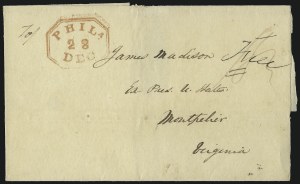 To/
PHILA
28
DEC
James Madison Free
Ex Pres. U States
Montpelier
Virginia